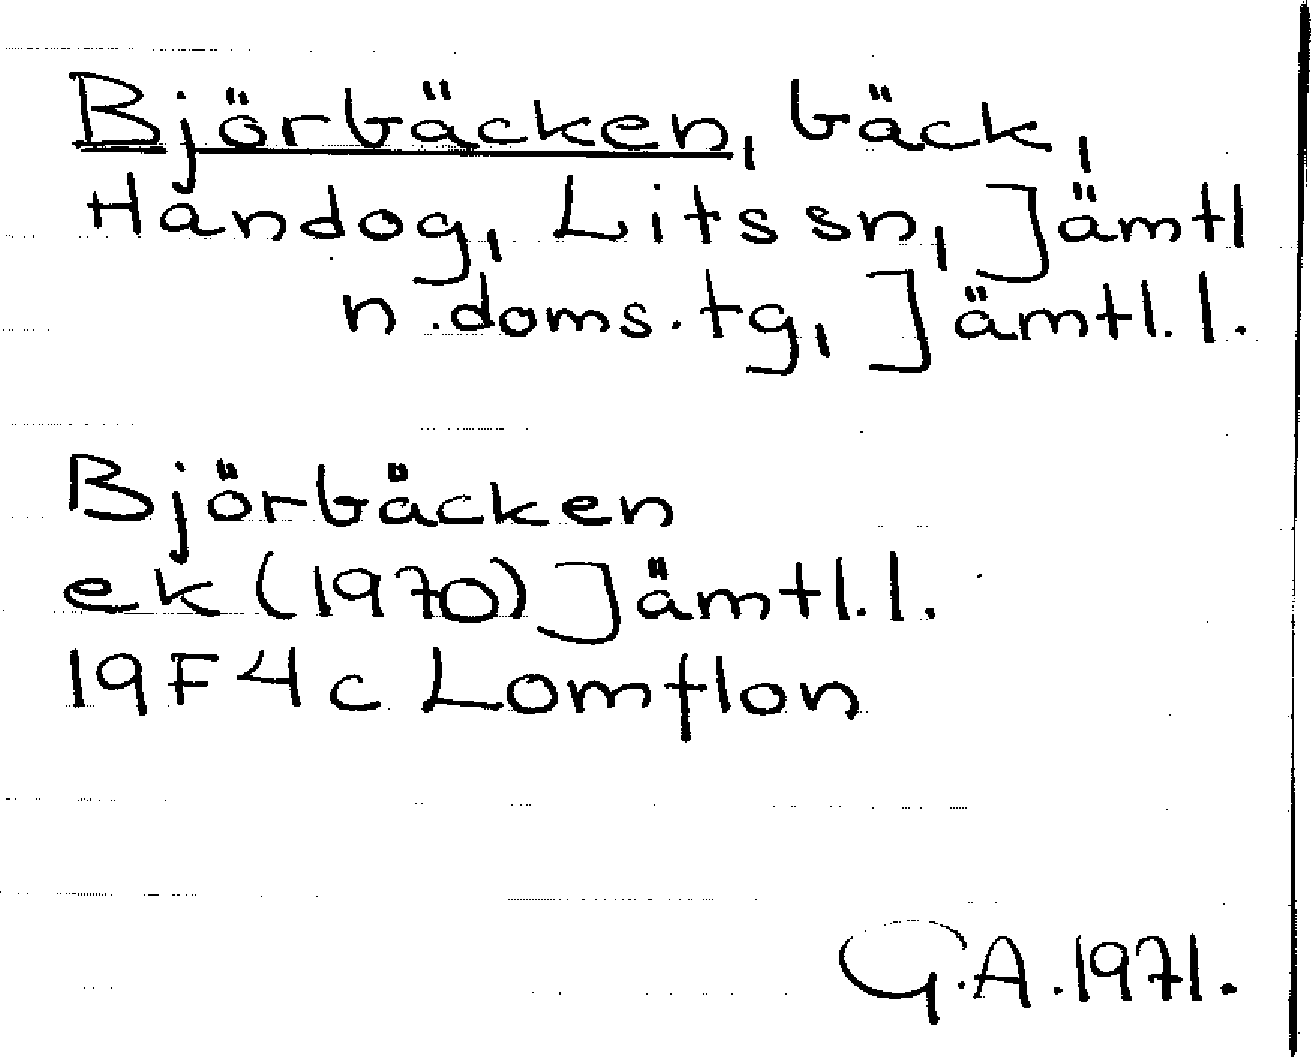 Björbäcken, bäck,
Handog, Lits sn, Jämtl
n. doms. tg, Jämtl. l.
Björbäcken
ek (1970) Jämtl. l.
19F4c Lomflon
G.A. 1971.